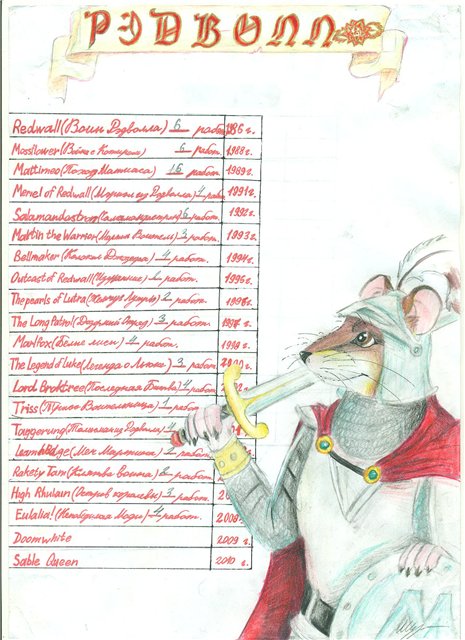 РЭДВОЛЛ
Redwall (Воин Рэдволла) 6 работ. 1986 г.
Mossflower (Война с Котиром) 6 работ. 1988 г.
Mattimeo (Поход Матиаса) 16 работ. 1989 г.
Mariel of Redwall (Мэриэль из Рэдволла) 4 работ. 1991 г.
Salamandastron (Саламандастрон) 6 работ. 1992 г.
Martin the Warrior (Мартин Воитель) 3 работ. 1993 г.
Bellmaker (Колокол Джозефа) 4 работ. 1994 г.
Outcast of Redwall (Изгнанник) работ. 1995 г.
The pearls of Lutra (Жемчуг Лутры) работ. 1996 г.
The Long Patrol (Дозорный Отряд) 3 работ. 1997 г.
Marlfox (Белые лисы) 4 работ. 1998 г.
The Legend of Luke (Легенда о Льюке) 3 работ.
Lord Broktree (Последняя Битва) 4 работ.
Triss (Трисс Воительница) 1 работ.
Taggerung (Талисман из Рэдволла) 4
(Меч Мартина) 2 работ.
Rakety Tam (Клятва воина) работ.
High Rhulain (Остров королевы) 3 работ.
Eulalia! (Непобедимая Моди) 4 работ.
Doomwhite 2009 г.
Sable Queen 2010 г.